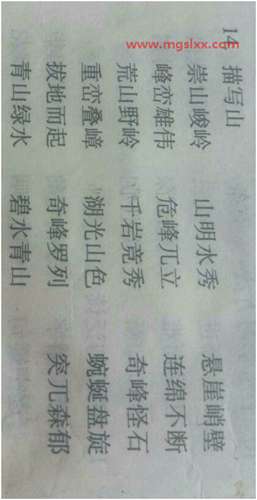 www.mgslxx.com
14 描写山
崇山峻岭 山明水秀 悬崖峭壁
峰峦雄伟 危峰兀立 连绵不断
荒山野岭 千岩竞秀 奇峰怪石
重峦叠嶂 湖光山色 蜿蜒盘旋
拔地而起 奇峰罗列 突兀森郁
青山绿水 碧水青山